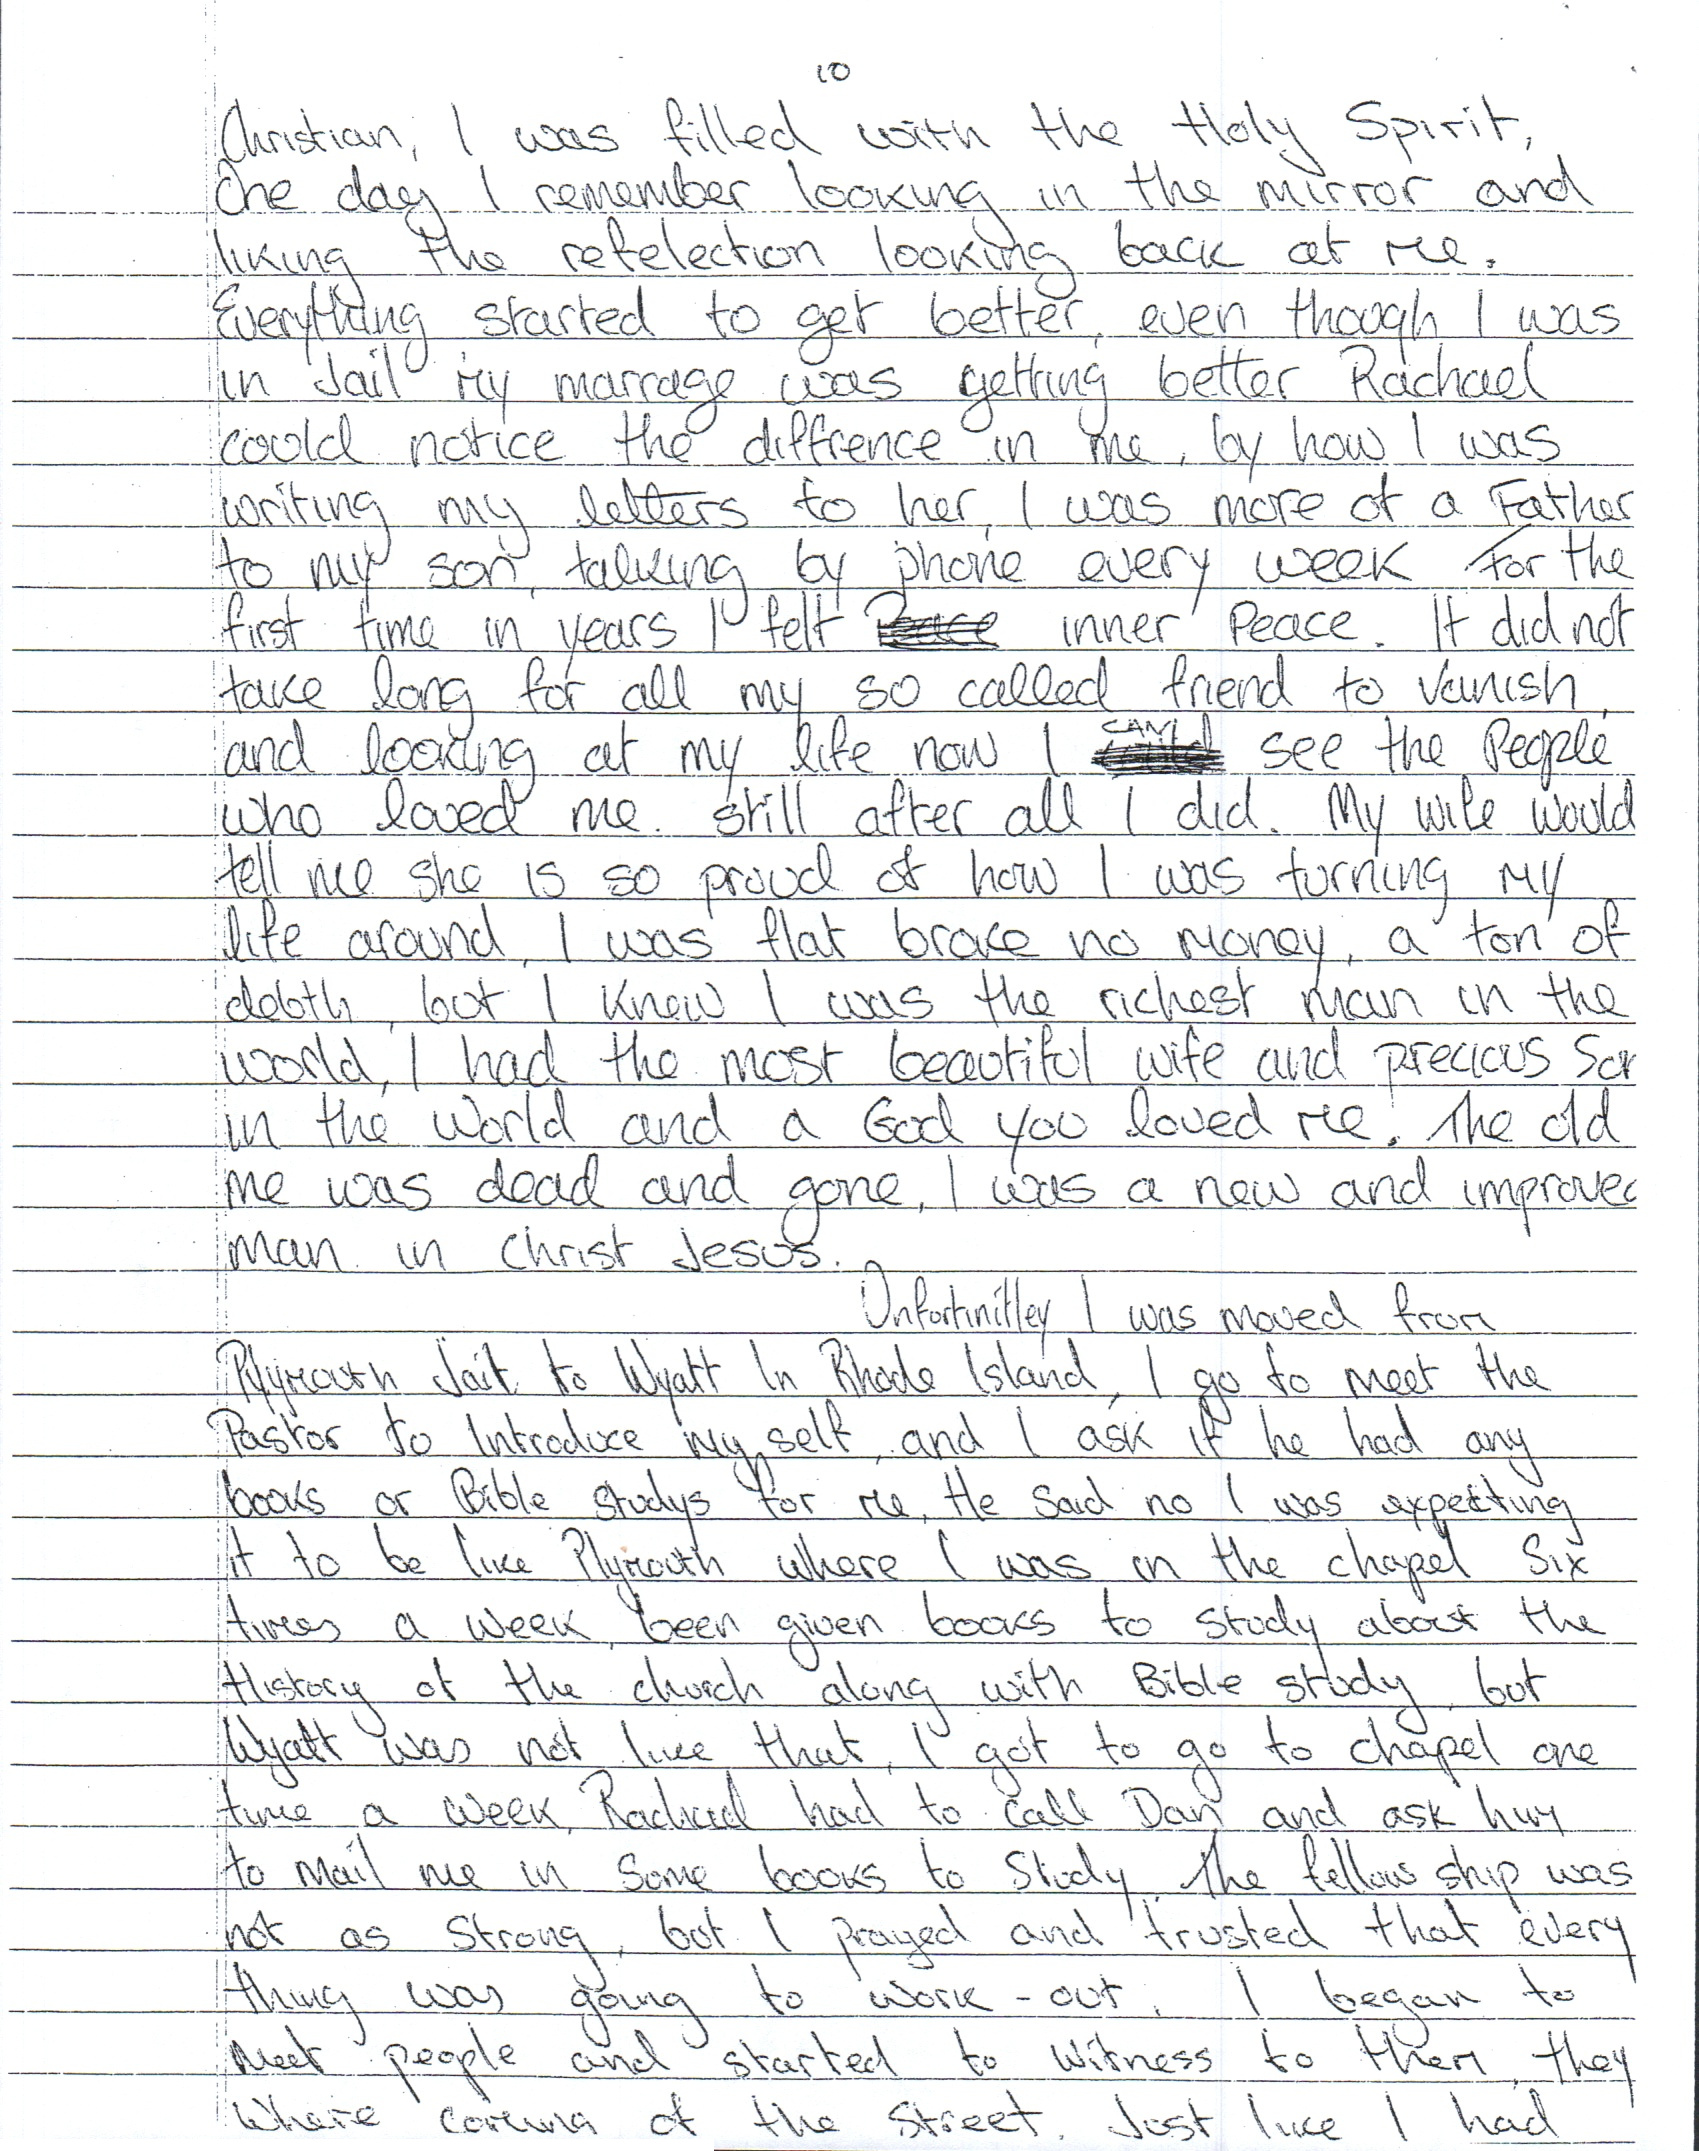 10
Christian, I was filled with the Holy Spirit,
One day I remember looking in the mirror and
liking the refelection looking back at me.
Everything started to get better, even though I was
in Jail My marrage was getting better Rachael
could notice the diffrence in me, by how I was
writing my letters to her, I was more of a Father
to my son, talking by phone every week For the
first time in years I felt inner Peace. It did not
take long for all my so called friend to vanish,
and looking at my life now I CAN see the People
who loved me still after all I did. My wife would
tell me she is so proud of how I was turning my
life around, I was flat broke no money, a ton of
debth, but I knew I was the richest man in the
world, I had the most beautiful wife and precious Son
in the world and a God you loved me. The old
me was dead and gone, I was a new and improved
man in Christ Jesus.
Unfortinitley I was moved from
Plymouth Jail to Wyatt In Rhode Island, I go to meet the
Pastor to Introduce my self, and I ask if he had any
books or Bible studys for me, He said no I was expecting
it to be like Plymouth where I was in the chapel Six
times a week, been given books to study about the
History of the church along with Bible study, but
Wyatt was not like that, I got to go to chapel one
time a week, Rachael had to call Dan and ask him
to mail me in some books to Study, The fellow ship was
not as strong, but I prayed and trusted that every
thing was going to work-out, I began to
meet people and started to witness to them, they
where coming of the street. Just like I had